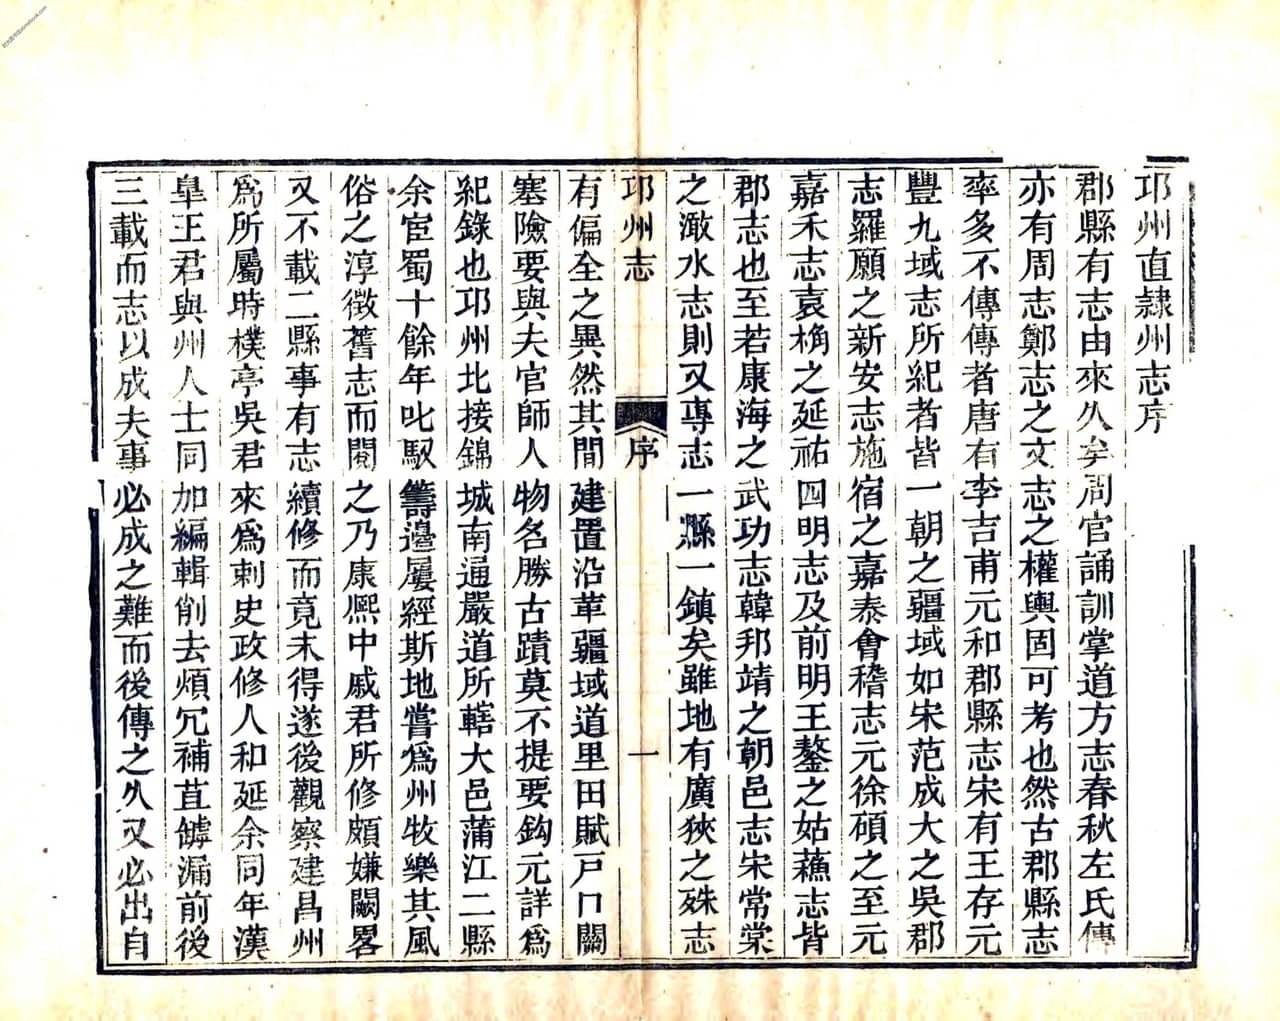 邛州直隸州志序
郡縣有志由來久矣周官誦訓掌道方志春秋左氏傳
亦有周志鄭志之文志之權輿固可考也然古郡縣志
率多不傳傳者唐有李吉甫元和郡縣志宋有王存元
豐九域志所紀者皆一朝之疆域如宋范成大之吳郡
志羅願之新安志施宿之嘉泰會稽志元徐碩之至元
嘉禾志袁桷之延祐四明志及前明王鏊之姑蘓志皆
郡志也至若康海之武功志韓邦靖之朝邑志宋常棠
之澉水志則又專志一縣一鎮矣雖地有廣狹之殊志
邛州志
序
一
有偏全之異然其間建置沿革疆域道里田賦戶口關
塞險要與夫官師人物名勝古蹟莫不提要鈎元詳爲
紀錄也邛州北接錦城南通嚴道所轄大邑蒲江二縣
余宦蜀十餘年叱馭籌邊屢經斯地嘗爲州牧樂其風
俗之淳徵舊志而閱之乃康熙中戚君所修頗嫌闕畧
又不載二縣事有志續修而竟未得遂後觀察建昌州
爲所屬時樸亭吳君來爲刺史政修人和延余同年漢
皐王君與州人士同加編輯削去煩冗補苴罅漏前後
三載而志以成夫事必成之難而後傳之久又必出自